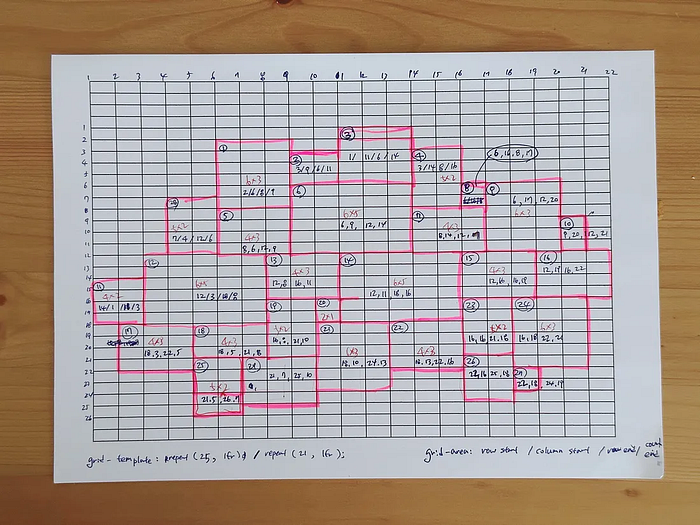 1 2 3 4 5 6 7 8 9 10 11 12 13 14 15 16 17 18 19 20 21 22
1
2
3
4
5
6
7
8
9
10
11
12
13
14
15
16
18
19
20
21
22
23
24
25
26
1
6x3
2/6/8/9
2
3/9/6/11
3
1/ 11/6/14
4
3/14/8/16
6,16,8,17
5
4x3
8,6,12,9
6
6x5
6,9, 12,14
8
9
6,17,12,20
6x3
7/4/12/6
11
4x3
10
9,20, 12,21
12
6x5
12/3/18/8
13
4x3
12,8 16,11
14
6x5
12,11 18,16
15
4x3
16
12,19 16,22
11
4x2
14/1 /18/3
17
4x3
18,3,22,5
18
4x3
18,5,21,8
19
20
2x1
21
18,10,24,13
22
4x3
18,13,22,16
23
24
6x3
16,18 22,21
25
21,5,26,7
21,7,25,10
26
22,16 25,18
22,18 24,19
grid-template: repeat (25, 1fr) / repeat (21, 1fr);
grid-area: row start / column start / row end/ end